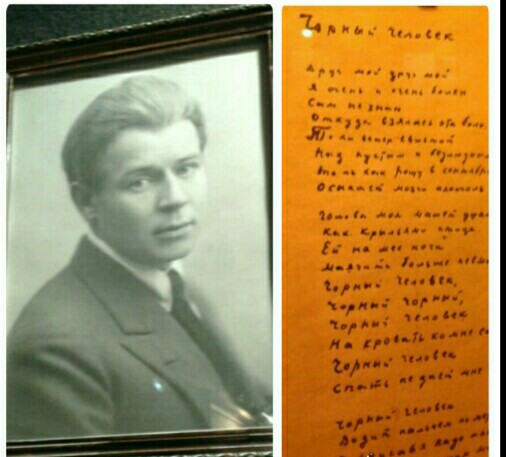 Чорный человек
Друг мой друг мой
Я очень и очень болен
Сам не знаю
Откуда взялась эта боль.
То ли ветер свистит
Над пустым и безлюдном
То ль как рощу в сентябр
Осыпает мозги алкоголь
Голова моя машет уша
Как крыльями птица
Ей на шее ноги
Маячить больше невм
Чорный человек,
Чорный чорный,
Чорный человек
На кровать ко мне са
Чорный человек
Спать не дает мне
Чорный человек
Водит пальцем по мер